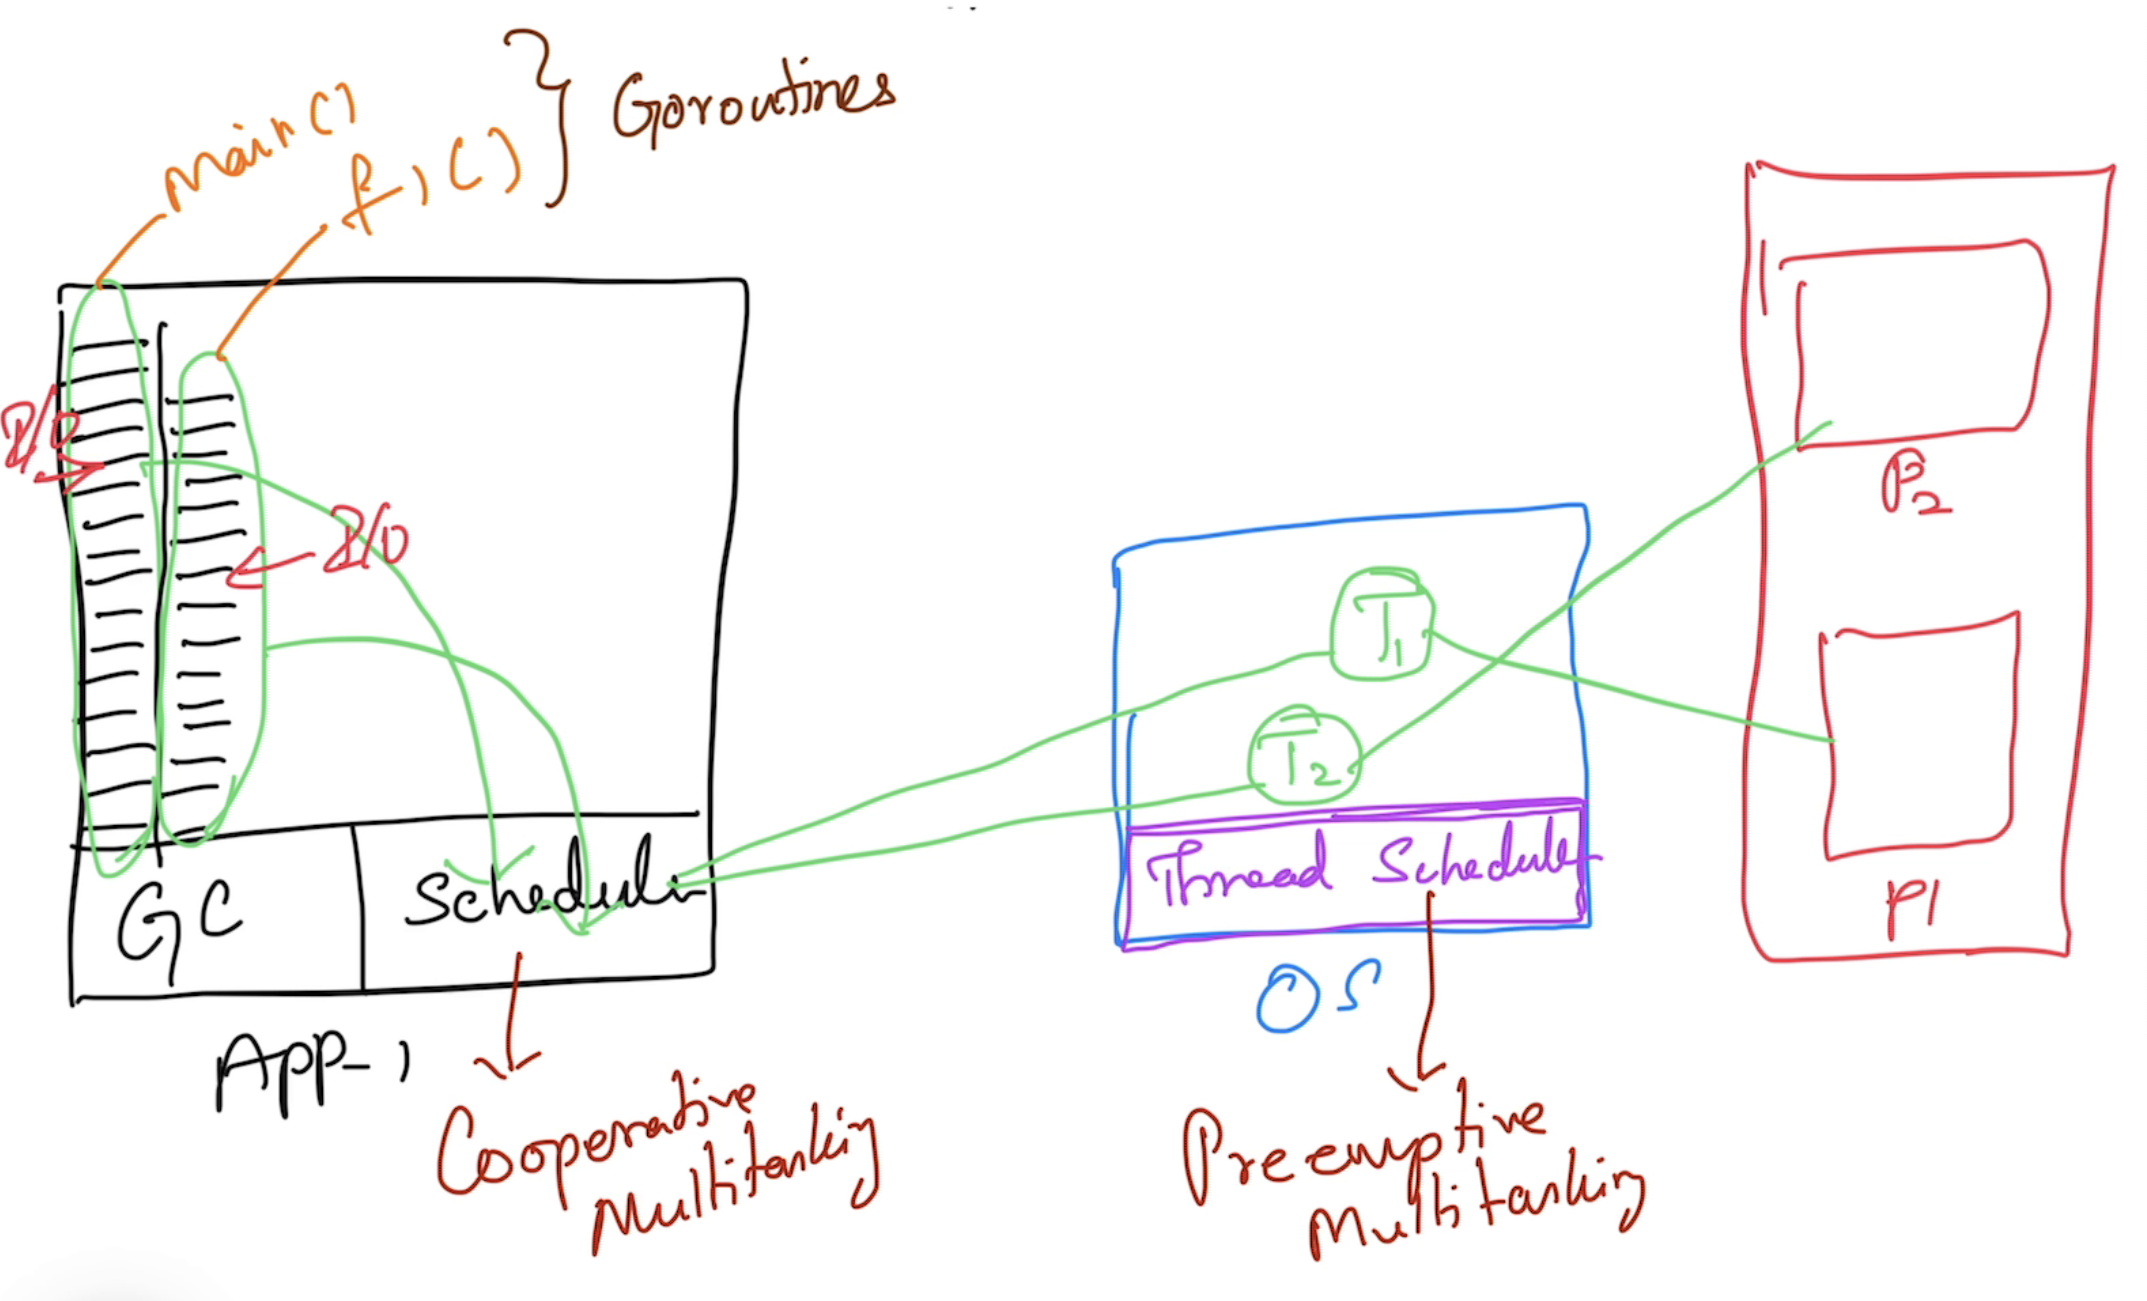 main()
f1()
Goroutines
I/O
I/O
GC
Scheduler
App-1
Cooperative
Multitasking
T1
T2
Thread Scheduler
OS
Preemptive
Multitasking
P2
P1